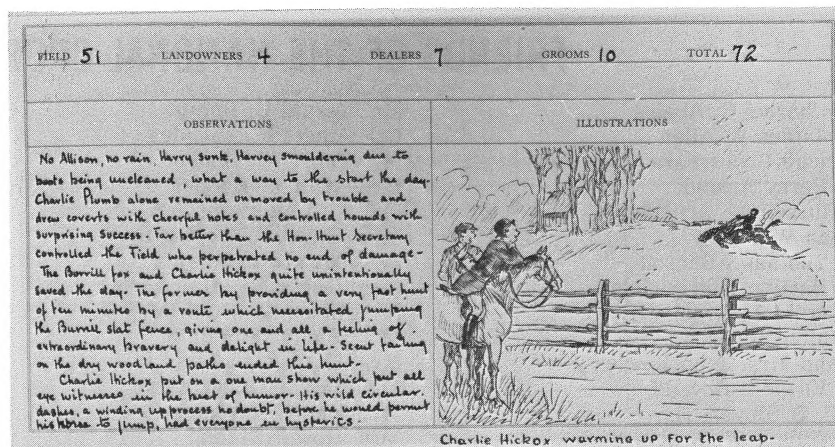 FIELD 51 LANDOWNERS 4 DEALERS 7 GROOMS 10 TOTAL 72
OBSERVATIONS
No Allison, no rain, Harry sunk, Harvey smouldering due to
boots being uncleaned, what a way to the start the day-
Charlie Plumb alone remained unmoved by trouble and
drew coverts with cheerful notes and controlled hounds with
surprising success. Far better than the Hon: Hunt Secretary
controlled the Field who perpetrated no end of damage-
The Borrill fox and Charlie Hickox quite unintentionally
saved the day. The former by providing a very fast hunt
of ten minutes by a route which necessitated jumping
the Burrill slat fence, giving one and all a feeling of
extraordinary bravery and delight in life. Scent failing
on the dry woodland paths ended this hunt.
Charlie Hickox put on a one man show which put all
eye witnesses in the best of humor. His wild circular
dashes, a winding up process no doubt, before he would permit
his horse to jump, had everyone in hysterics.
ILLUSTRATIONS
Charlie Hickox warming up for the leap-